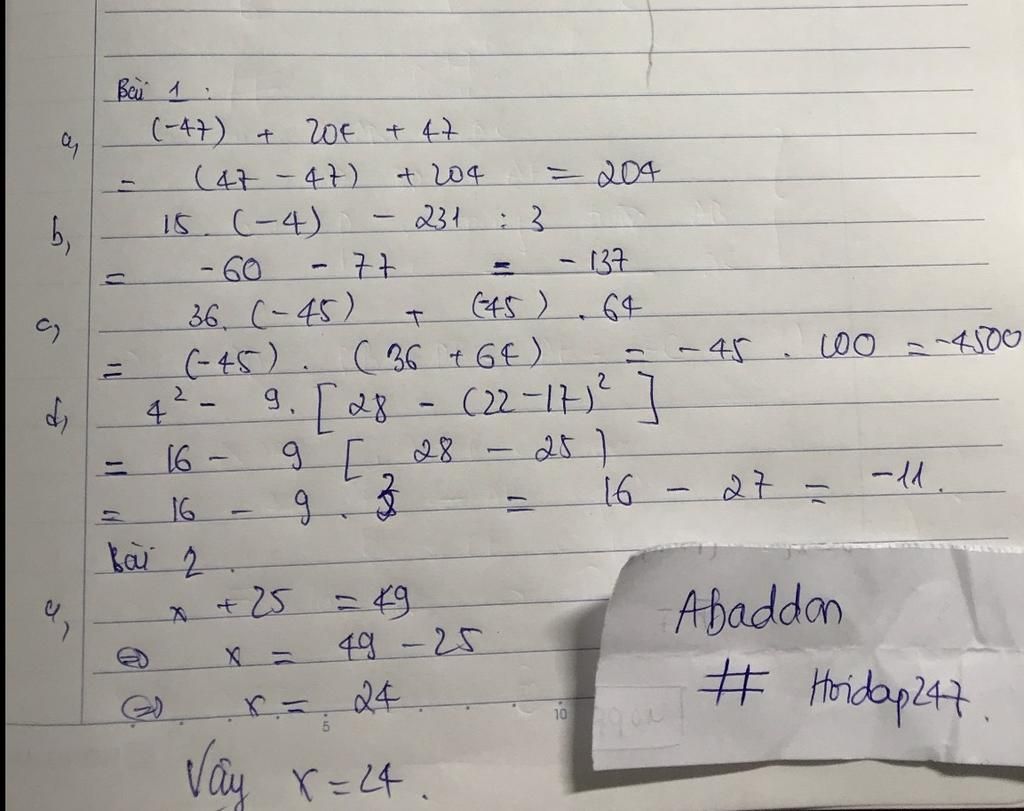 Bài 1 :
a, (-47) + 204 + 47
= (47 - 47) + 204 = 204
b, 15. (-4) - 231 : 3
= -60 - 77 = -137
c, 36. (-45) + (-45) . 64
= (-45) . (36 + 64) = -45 . 100 = -4500
d, 4² - 9. [28 - (22-17)²]
= 16 - 9 [ 28 - 25 ]
= 16 - 9 . 3 = 16 - 27 = -11.
Bài 2.
a, x + 25 = 49
⇔ x = 49 - 25
⇔ x = 24
5 10
Vậy x = 24.
Abaddon
# Hoidap247.